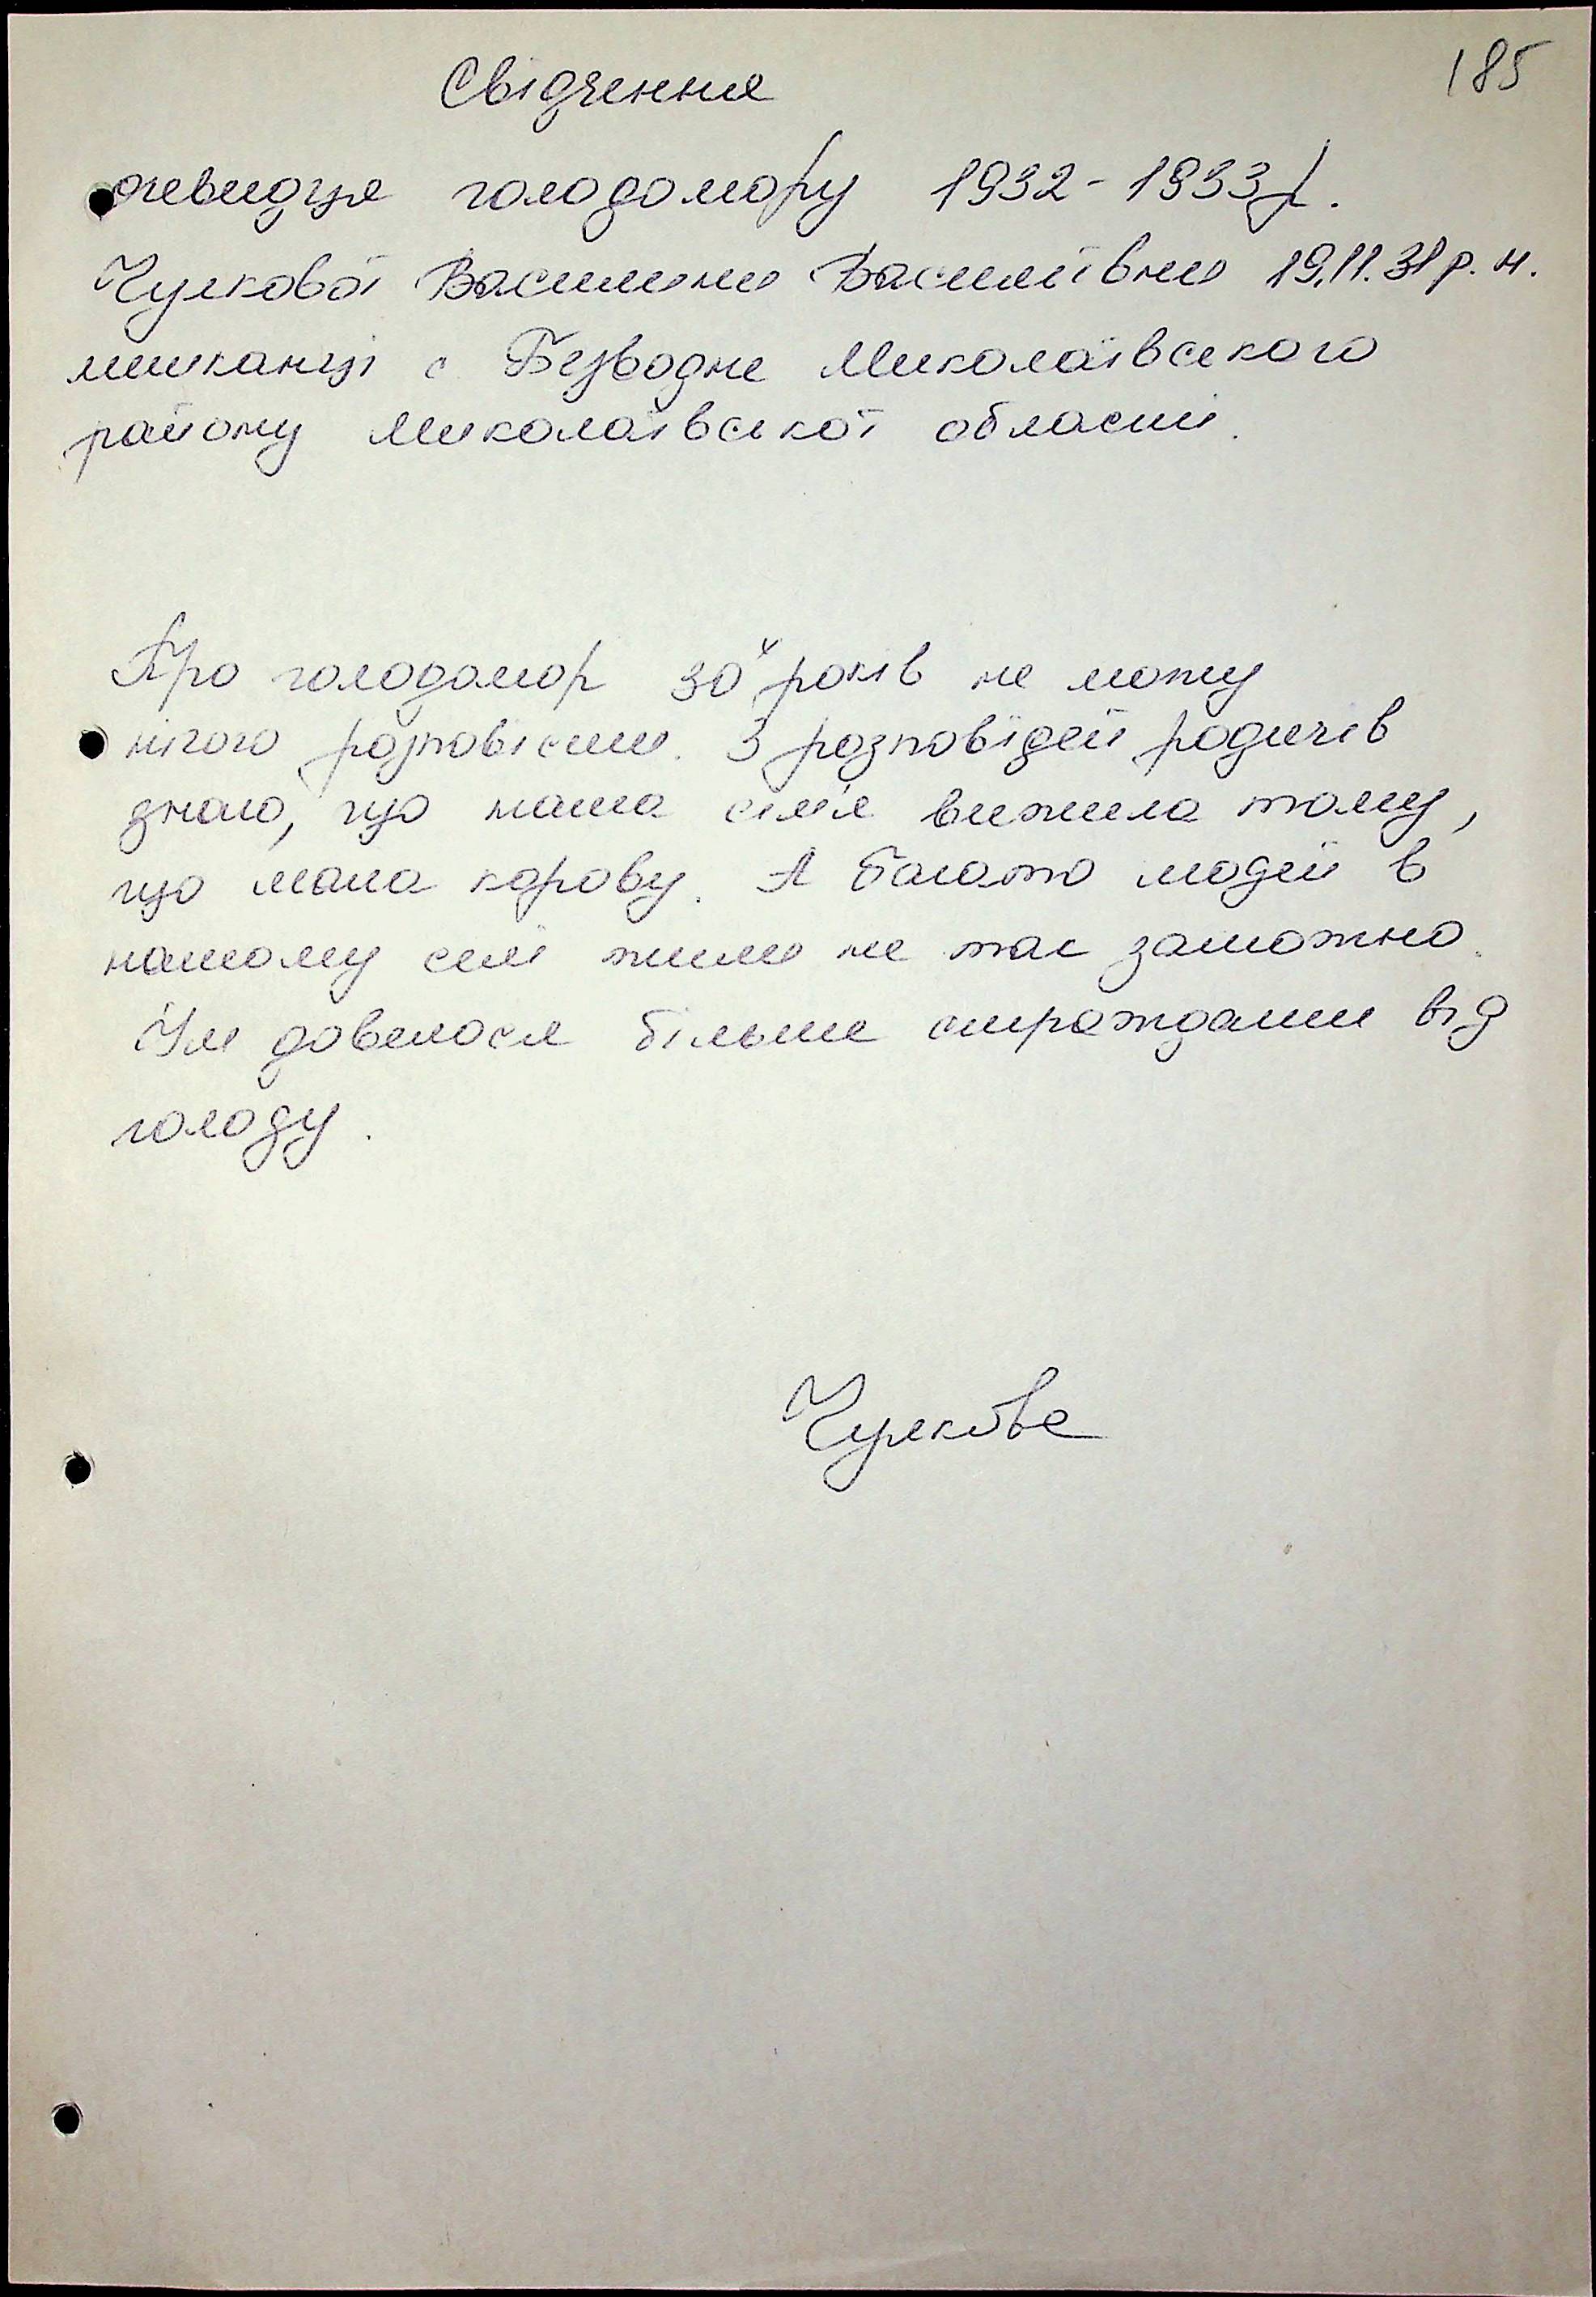 185
Свідчення
очевидця голодомору 1932-1933р.
Чулкової Василини Василівни 19.11.31 р.н.
мешканці с Безводне Миколаївського
району Миколаївської області.
Про голодомор 30х років не можу
нічого розповісти. З розповідей родичів
знаю, що наша сім'я вижила тому,
що мала корову. А багато людей в
нашому селі жили не так заможно.
Їм довелося більше страждати від
голоду.
Чулкова